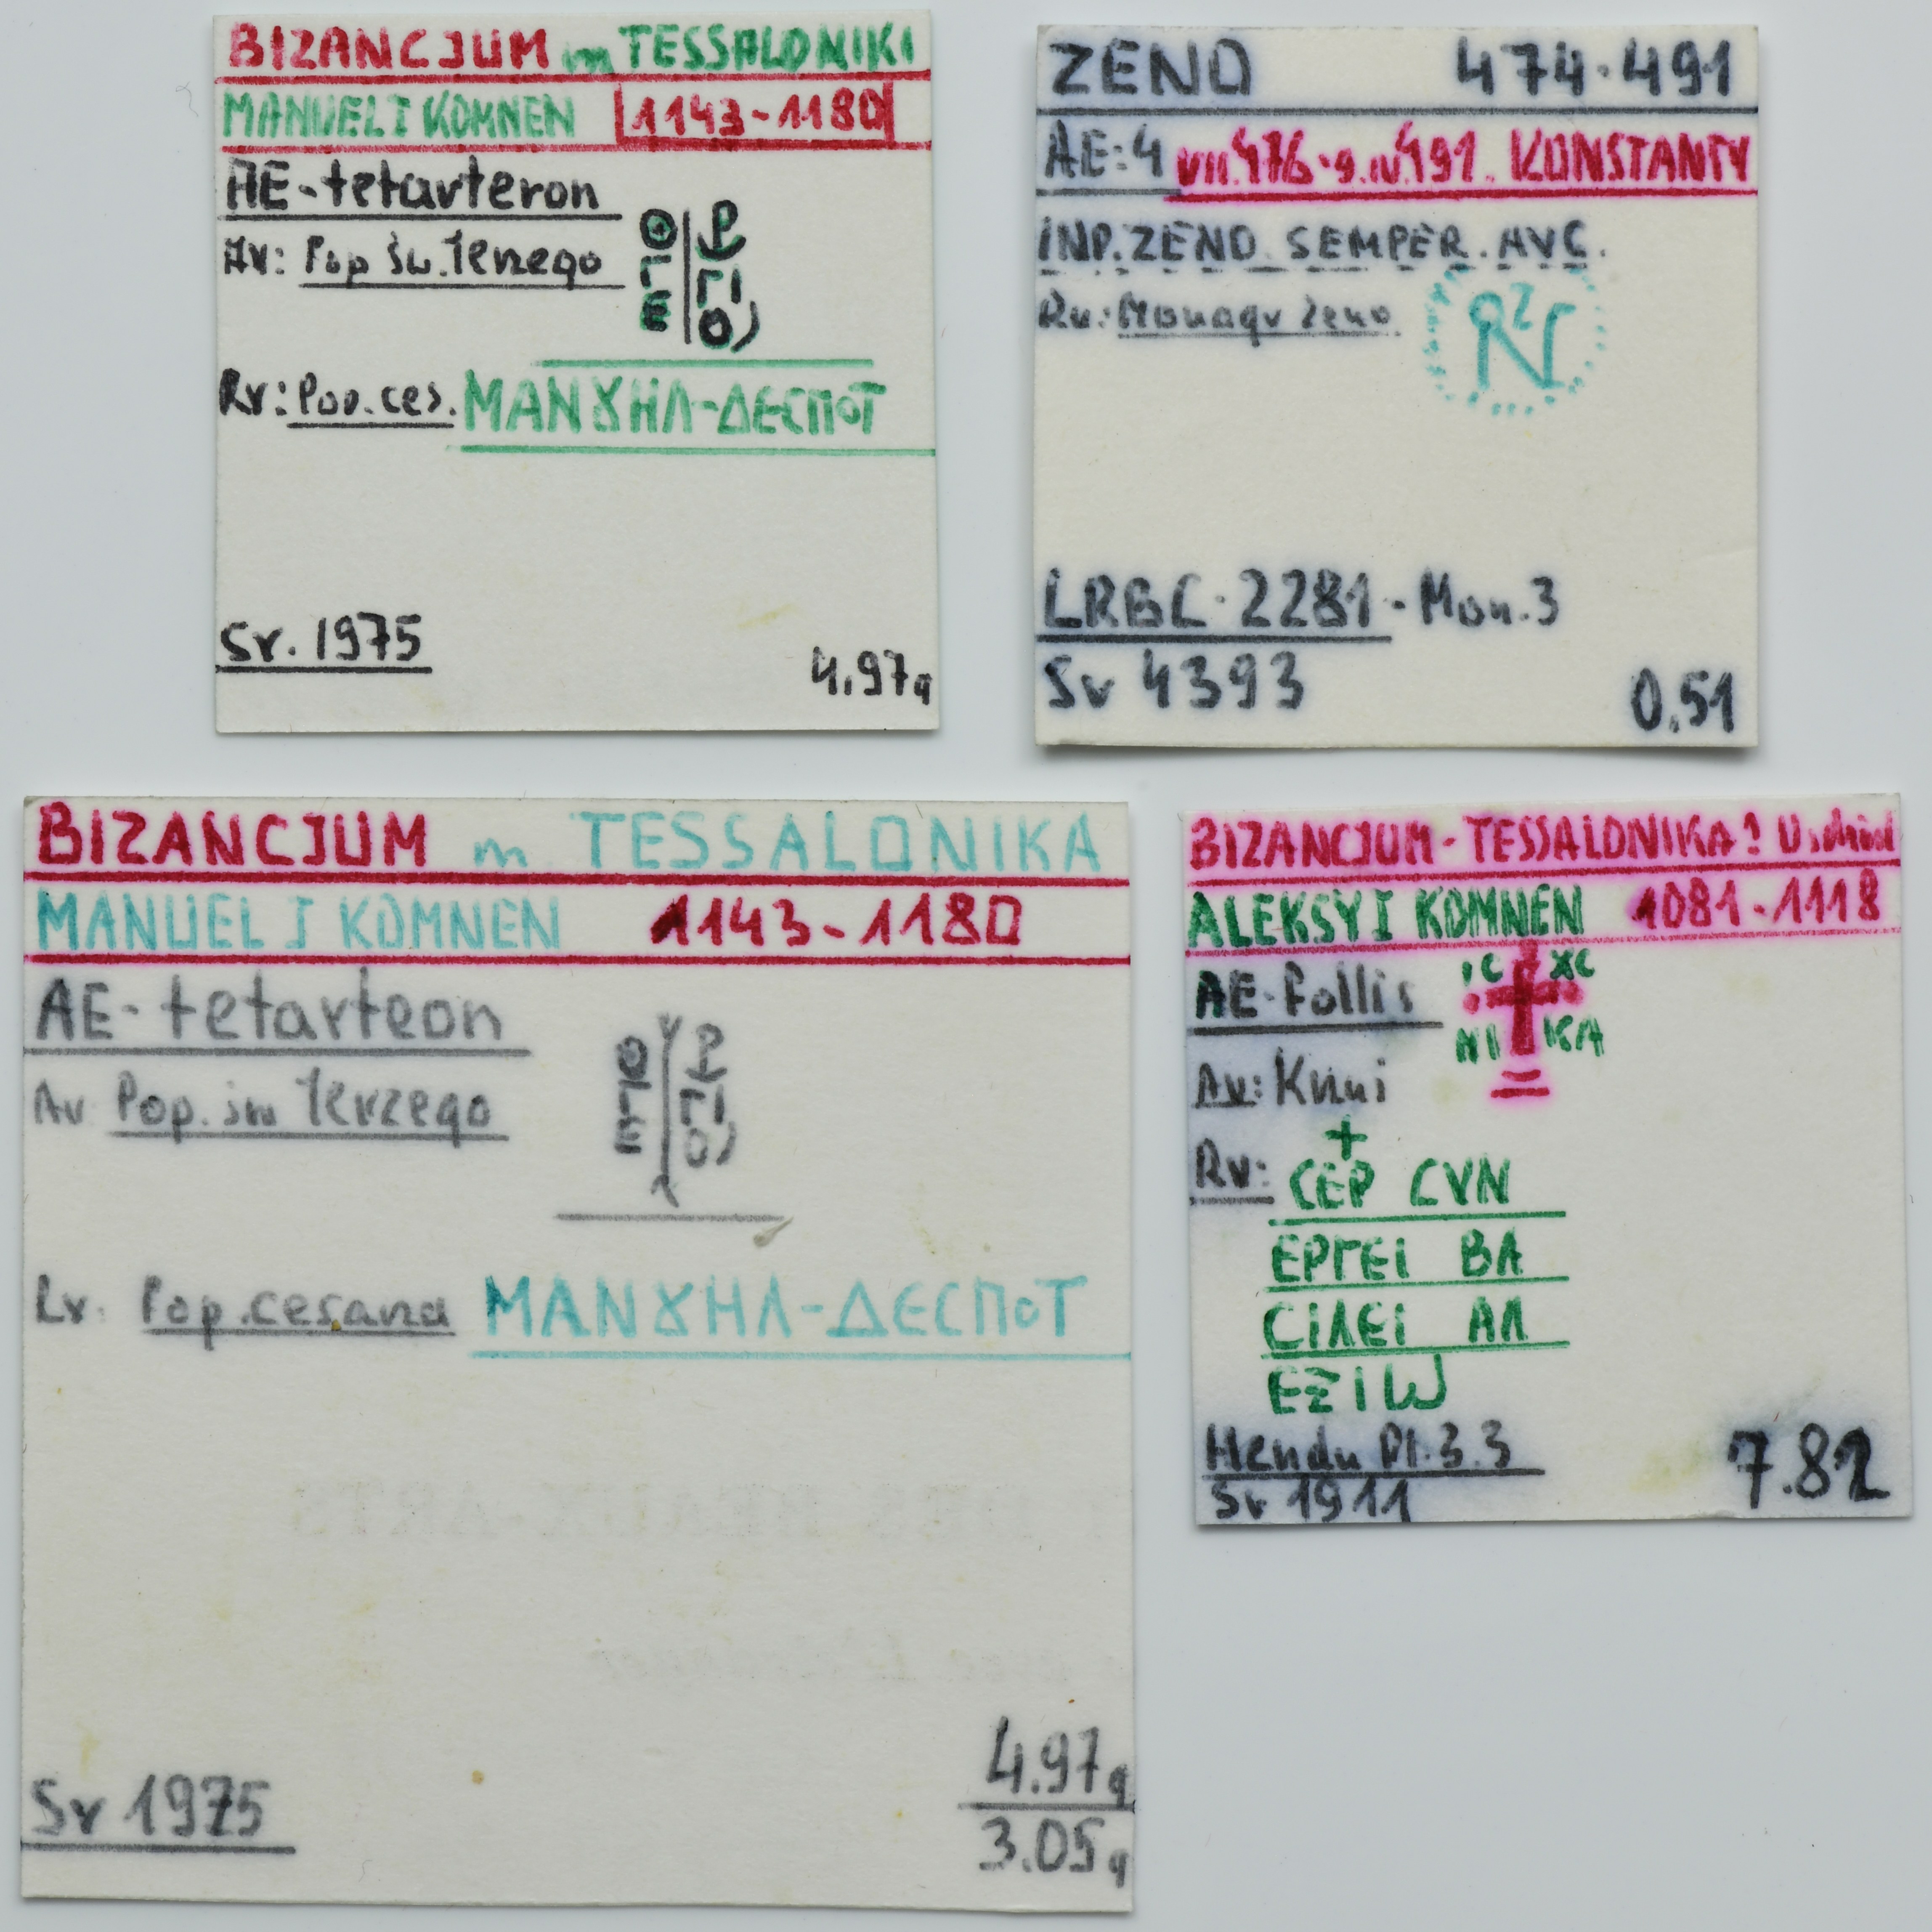 BIZANCJUM m TESSALONIKI
MANUEL I KOMNEN 1143-1180
AE-tetarteron
Av: Pop św. Jerzego
Θ
Γ
Ε
Ρ
Γ
Ι
Ο
Rv: Pop. ces. ΜΑΝȣΗΛ-ΔΕСΠοΤ
Sr. 1975
4.97g
ZENO 474-491
AE:4 VII.476-9.IV.491. KONSTANTY
INP. ZENO. SEMPER. AVG.
Rv: Monogr Zeno
LRBC-2281-Mon.3
Sv 4393
0.51
BIZANCJUM m TESSALONIKA
MANUEL I KOMNEN 1143-1180
AE-tetarteon
Av Pop. św Jerzego
Θ
Γ
Ε
Ρ
Γ
Ι
Ο
Rv: Pop. cesarza ΜΑΝȣΗΛ-ΔΕСΠοΤ
Sv 1975
4.97g
3.05g
BIZANCJUM-TESSALONIKA?
ALEKSY I KOMNEN 1081-1118
AE-Follis
IC XC
NI KA
Av:
Rv: + CEP CVN
ΕΡΓΕΙ ΒΑ
CΙΛΕΙ ΑΛ
ΕΞΙW
Pl.3.3
Sv 1911
7.82